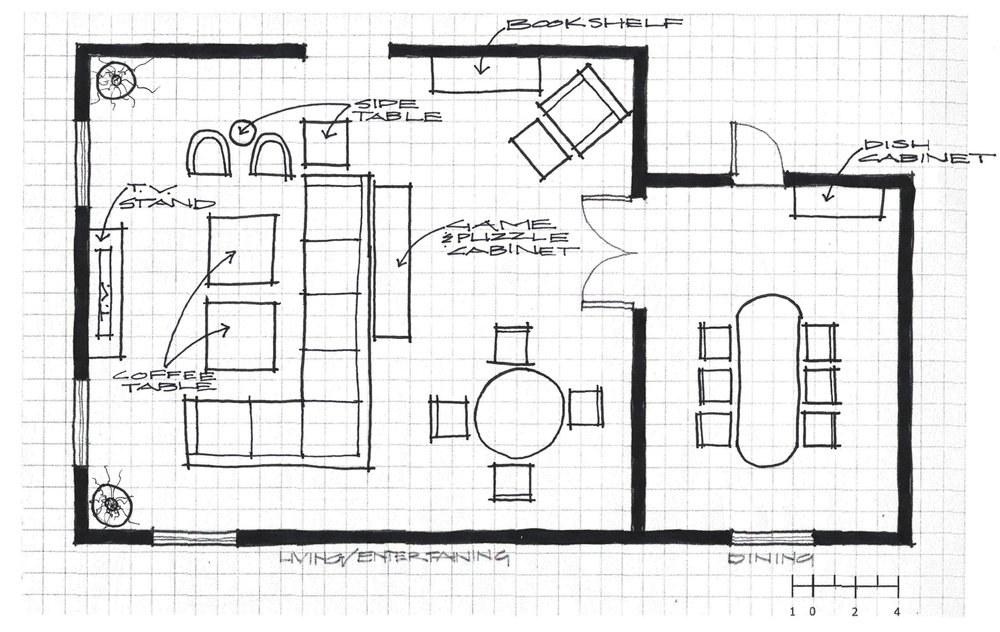 BOOKSHELF
SIDE
TABLE
DISH
CABINET
T.V.
STAND
GAME
& PUZZLE
CABINET
T.V.
COFFEE
TABLE
LIVING/ENTERTAINING
DINING
1 0 2 4